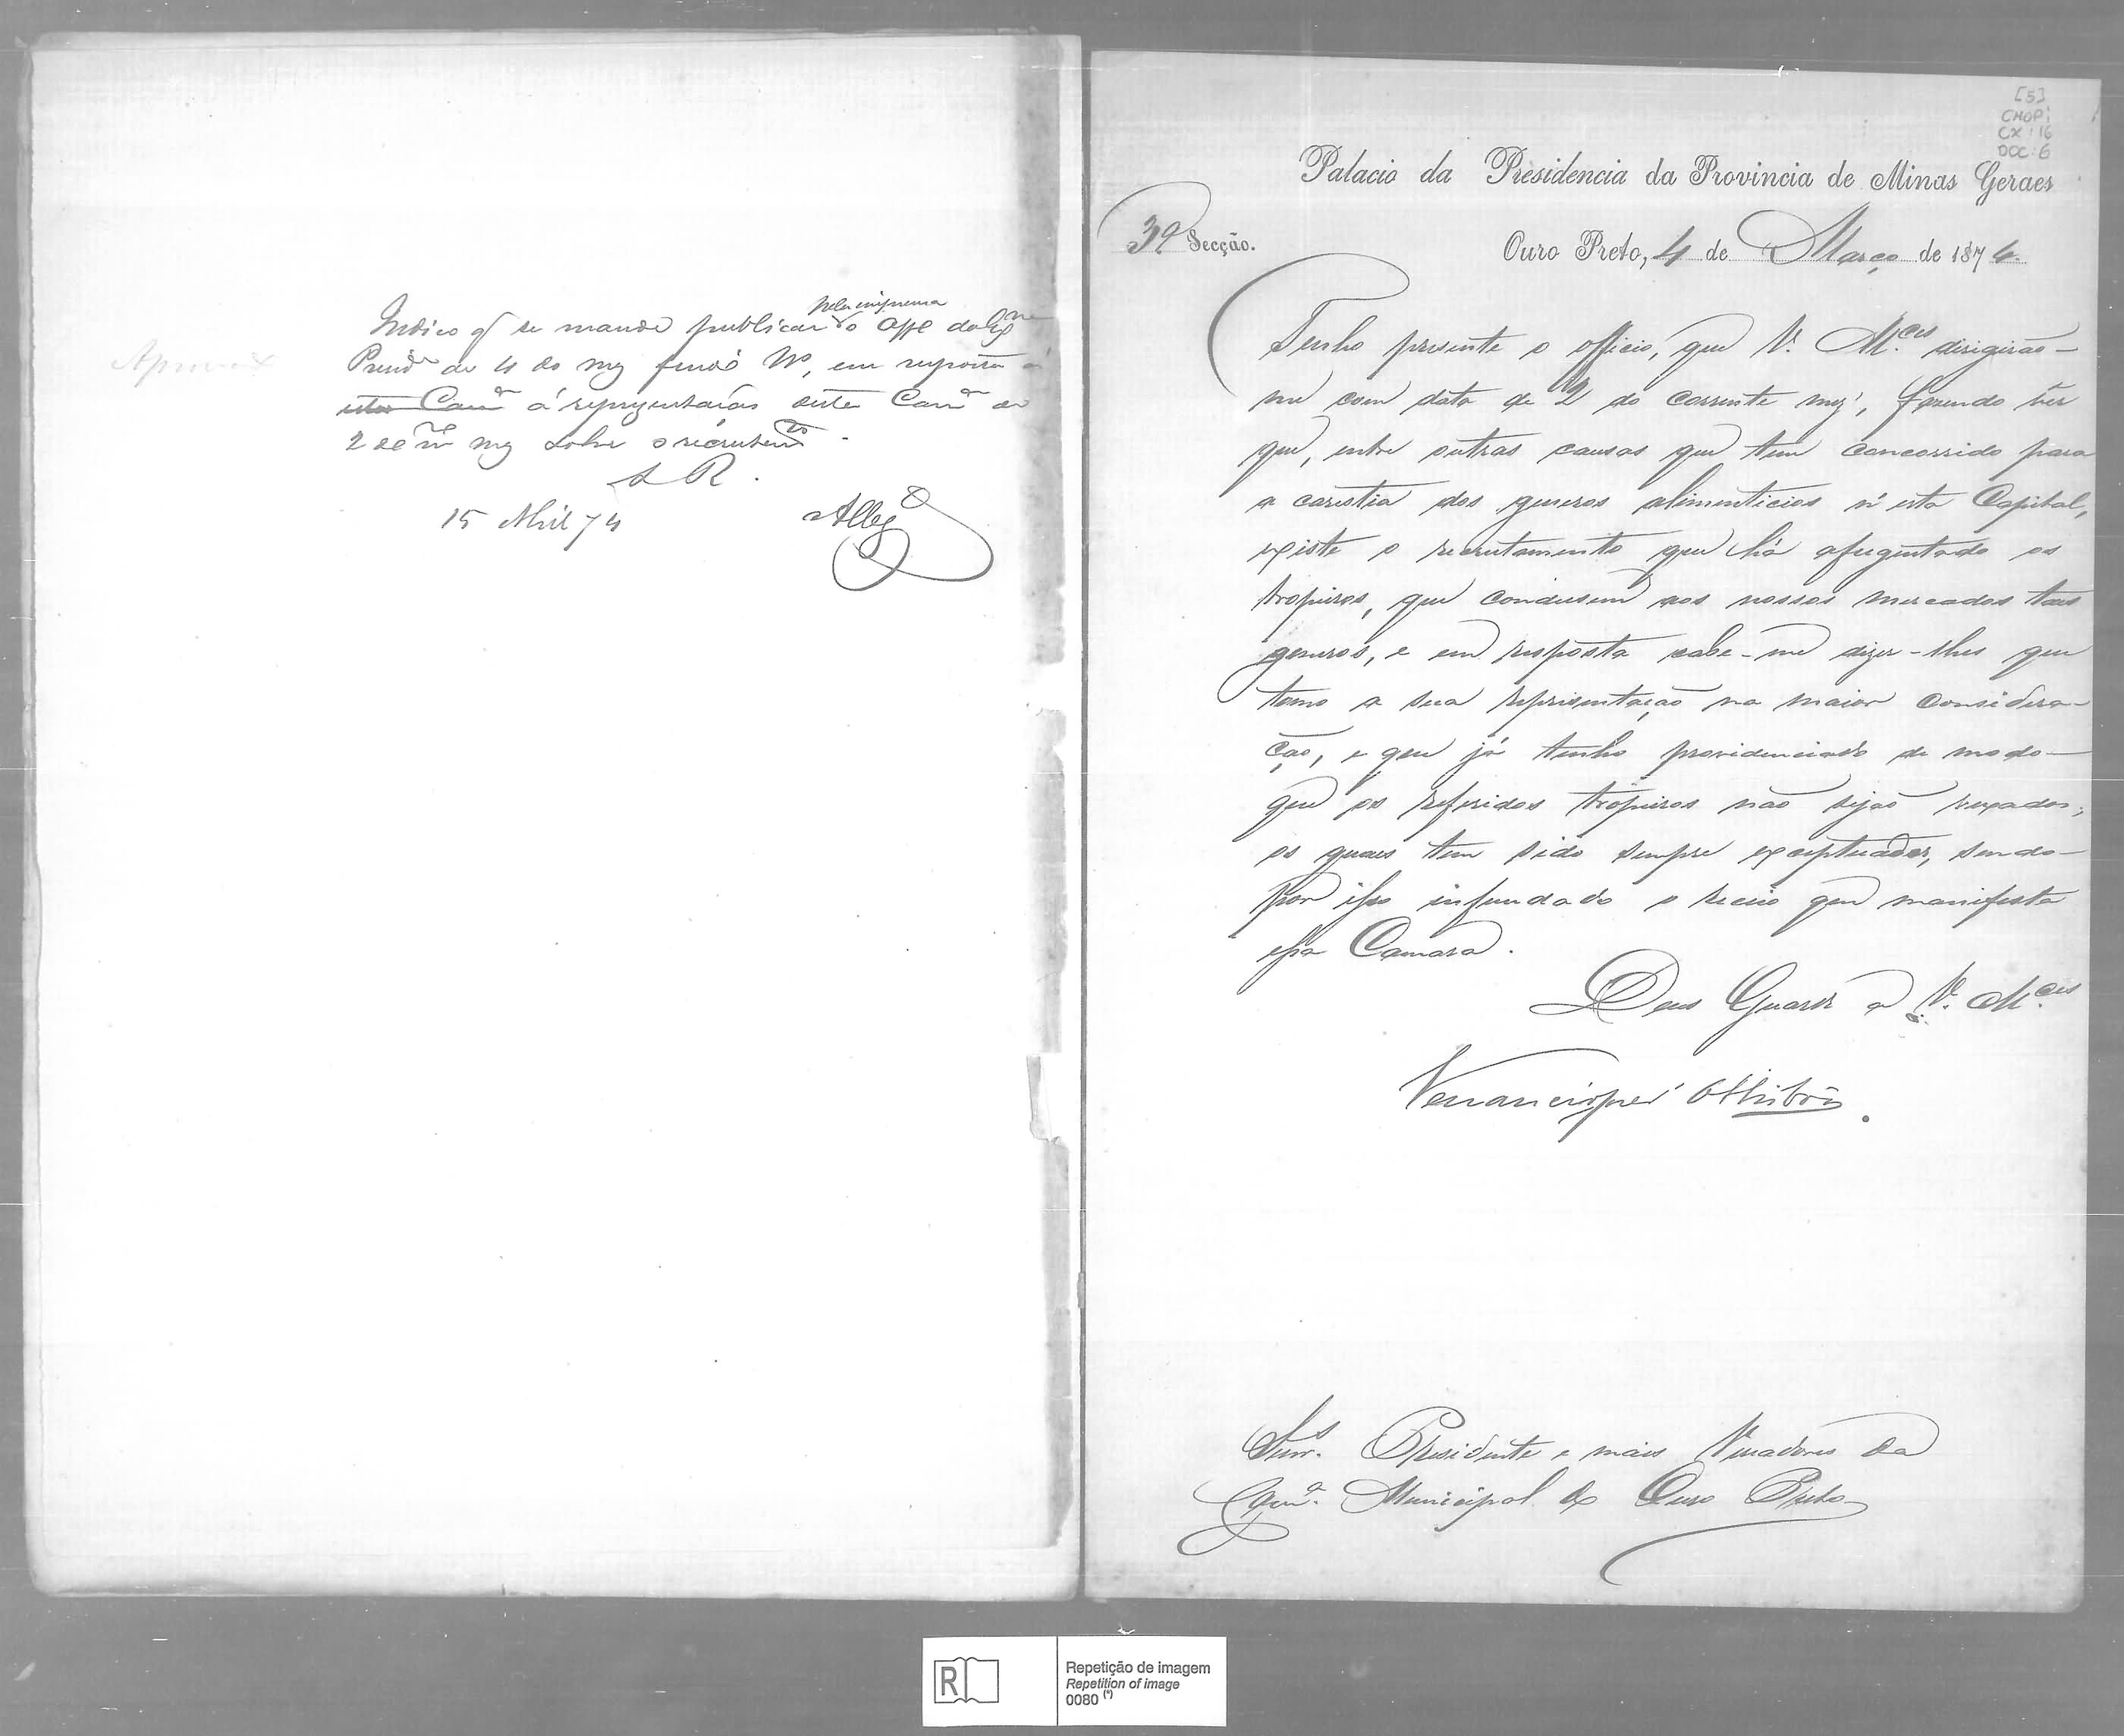 Indico q se mande publicar pela imprensa o off.e do Ex.mo
Presid.e de 4 do mez findo, em resposta á
esta Cam.a á representação desta Cam.a de
2 de m.mo mez sobre o recrutam.to.
S R.
15 Abril 74
[5]
CMOP
CX: 16
DOC: 6
Palacio da Presidencia da Provincia de Minas Geraes
3ª Secção.
Ouro Preto, 4 de Março de 1874.
Tenho presente o officio, que V. M.ces dirigirão-
me com data de 2 do corrente mez, fazendo ver
que, entre outras causas que tem concorrido para
a carestia dos generos alimenticios n'esta Capital,
existe o recrutamento que há afugentado os
tropeiros, que condusem aos nossos mercados taes
generos, e em resposta cabe-me dizer-lhes que
tomo a sua representação na maior considera-
ção, e que já tenho providenciado de modo
que os referidos tropeiros não sejão vexados,
os quaes tem sido sempre exceptuados, sendo
por isso infundado o receio que manifesta
essa Camara.
Deus Guarde a V. M.ces
Venancio José
Snr.s Presidente e mais Vereadores da
Cam.a Municipal de Ouro Preto
R
Repetição de imagem
Repetition of image
0080 (*)